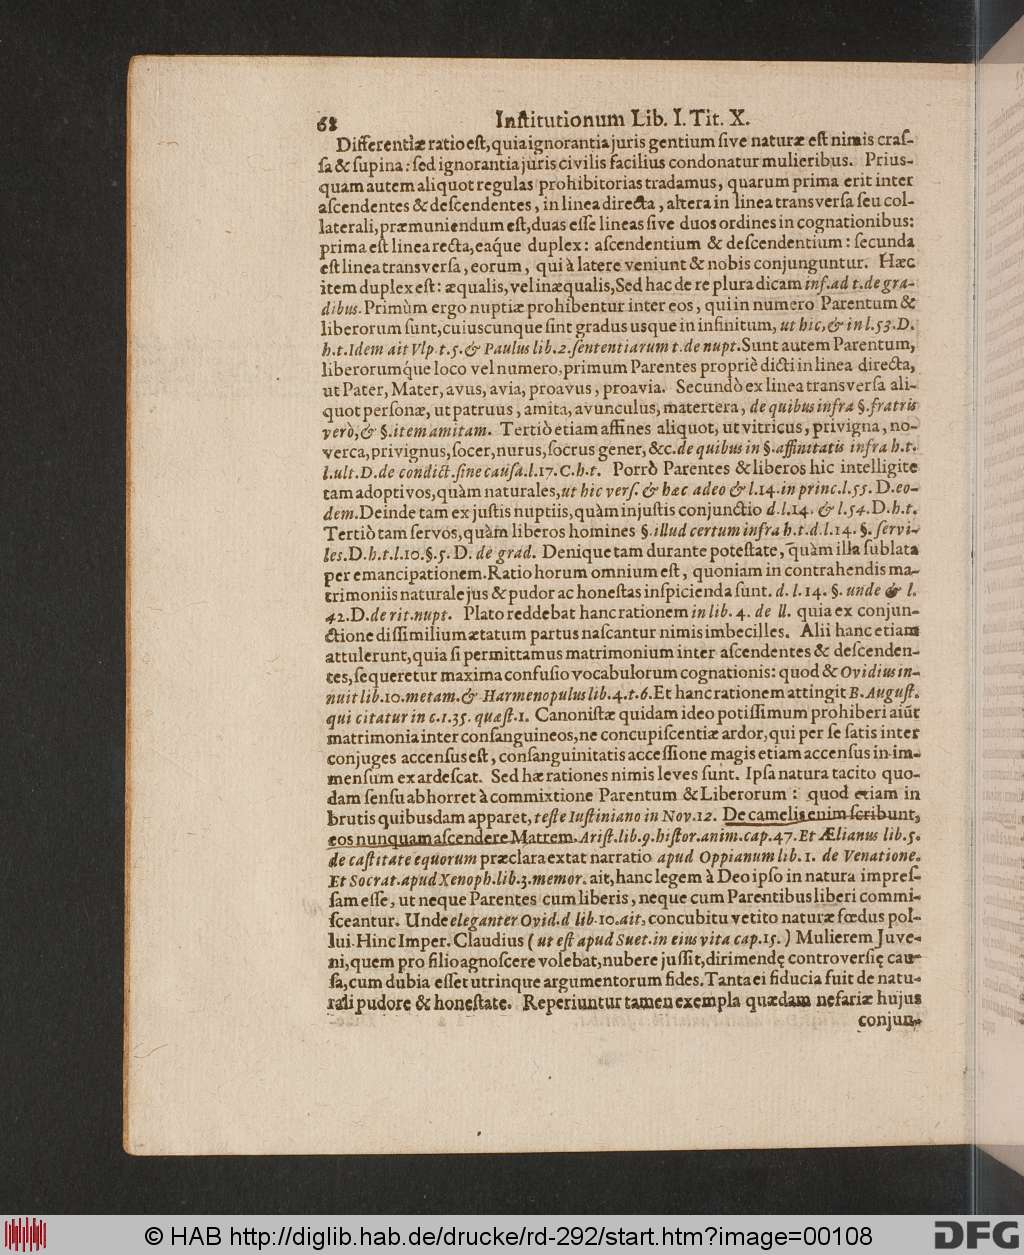 68 Inſtitutionum Lib. I. Tit. X.
Differentiæ ratio eſt, quia ignorantia juris gentium ſive naturæ eſt nimis craſ-
ſa & ſupina: ſed ignorantia juris civilis facilius condonatur mulieribus. Prius-
quam autem aliquot regulas prohibitorias tradamus, quarum prima erit inter
aſcendentes & deſcendentes, in linea directa, altera in linea transverſa ſeu col-
laterali, præmuniendum eſt, duas eſſe lineas ſive duos ordines in cognationibus:
prima eſt linea recta, eaq́ue duplex: aſcendentium & deſcendentium: ſecunda
eſt linea transverſa, eorum, qui à latere veniunt & nobis conjunguntur. Hæc
item duplex eſt: æqualis, vel inæqualis, Sed hac de re plura dicam inf. ad t. de gra-
dibus. Primùm ergo nuptiæ prohibentur inter eos, qui in numero Parentum &
liberorum ſunt, cuiuscunque ſint gradus usque in infinitum, ut hic, & in l. 53. D.
h. t. Idem ait Vlp. t. 5. & Paulus lib. 2. ſententiarum t. de nupt. Sunt autem Parentum,
liberorumq́ue loco vel numero, primum Parentes propriè dicti in linea directa,
ut Pater, Mater, avus, avia, proavus, proavia. Secundò ex linea transverſa ali-
quot perſonæ, ut patruus, amita, avunculus, matertera, de quibus infra §. fratris
verò, & §. item amitam. Tertiò etiam affines aliquot, ut vitricus, privigna, no-
verca, privignus, ſocer, nurus, ſocrus gener, &c. de quibus in §. affinitatis infra h. t.
l. ult. D. de condict. ſine cauſa. l. 17. C. h. t. Porrò Parentes & liberos hic intelligite
tam adoptivos, quàm naturales, ut hic verſ. & hæc adeo & l. 14. in princ. l. 55. D. eo-
dem. Deinde tam ex juſtis nuptiis, quàm injuſtis conjunctio d. l. 14. & l. 54. D. h. t.
Tertiò tam ſervos, quàm liberos homines §. illud certum infra h. t. d. l. 14. §. ſervi-
les. D. h. t. l. 10. §. 5. D. de grad. Denique tam durante poteſtate, quàm illa ſublata
per emancipationem. Ratio horum omnium eſt, quoniam in contrahendis ma-
trimoniis naturale jus & pudor ac honeſtas inſpicienda ſunt. d. l. 14. §. unde & l.
42. D. de rit. nupt. Plato reddebat hanc rationem in lib. 4. de ll. quia ex conjun-
ctione diſſimilium ætatum partus naſcantur nimis imbecilles. Alii hanc etiam
attulerunt, quia ſi permittamus matrimonium inter aſcendentes & deſcenden-
tes, ſequeretur maxima confuſio vocabulorum cognationis: quod & Ovidius in-
nuit lib. 10. metam. & Harmenopulus lib. 4. t. 6. Et hanc rationem attingit B. Auguſt.
qui citatur in c. 1. 35. quæſt. 1. Canoniſtæ quidam ideo potiſſimum prohiberi aiūt
matrimonia inter conſanguineos, ne concupiſcentiæ ardor, qui per ſe ſatis inter
conjuges accenſus eſt, conſanguinitatis acceſſione magis etiam accenſus in im-
menſum exardeſcat. Sed hæ rationes nimis leves ſunt. Ipſa natura tacito quo-
dam ſenſu abhorret à commixtione Parentum & Liberorum: quod etiam in
brutis quibusdam apparet, teſte Iuſtiniano in Nov. 12. De camelis enim ſcribunt,
eos nunquam aſcendere Matrem. Ariſt. lib. 9. hiſtor. anim. cap. 47. Et Ælianus lib. 5.
de caſtitate equorum præclara extat narratio apud Oppianum lib. 1. de Venatione.
Et Socrat. apud Xenoph. lib. 3. memor. ait, hanc legem à Deo ipſo in natura impreſ-
ſam eſſe, ut neque Parentes cum liberis, neque cum Parentibus liberi commi-
ſceantur. Unde eleganter Ovid. d lib. 10. ait, concubitu vetito naturæ fœdus pol-
lui. Hinc Imper. Claudius (ut eſt apud Suet. in eius vita cap. 15.) Mulierem Juve-
ni, quem pro filio agnoſcere volebat, nubere juſſit, dirimendę controverſię cau-
ſa, cum dubia eſſet utrinque argumentorum fides. Tanta ei fiducia fuit de natu-
rali pudore & honeſtate. Reperiuntur tamen exempla quædam nefariæ hujus
conjun-
© HAB http://diglib.hab.de/drucke/rd-292/start.htm?image=00108
DFG